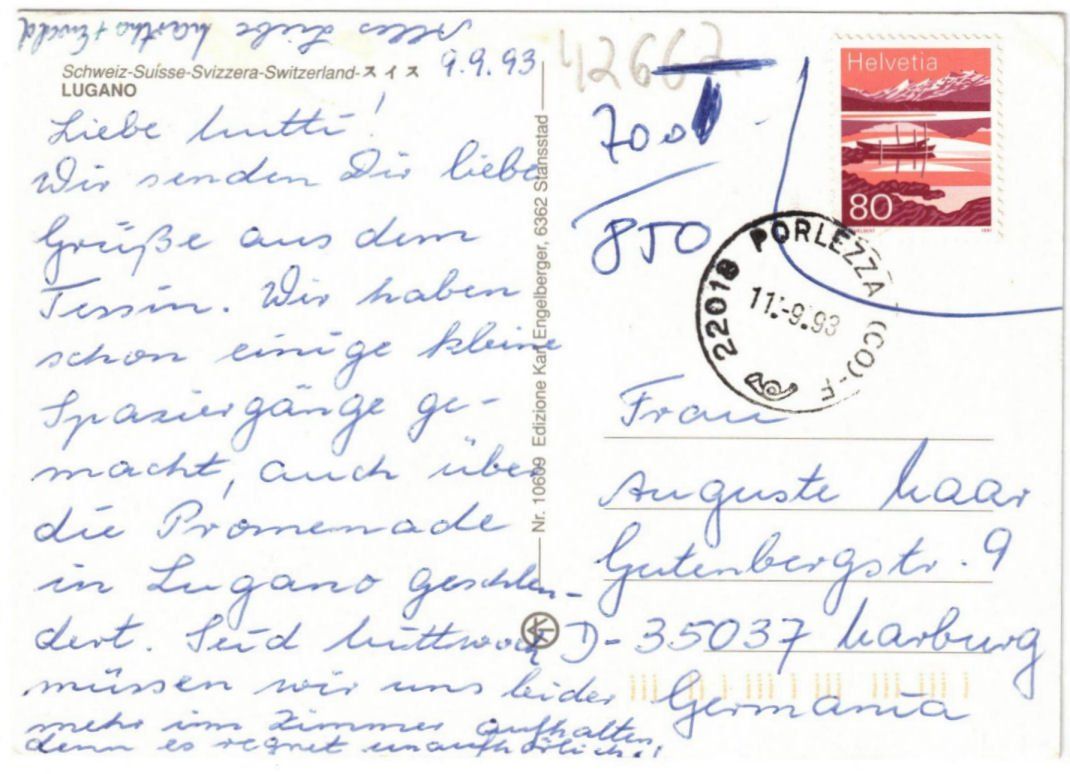 Alles Liebe Martha + Ewald
Schweiz-Suisse-Svizzera-Switzerland-スイス
LUGANO
9.9.93
Liebe Mutti!
Wir senden Dir liebe
Grüße aus dem
Tessin. Wir haben
schon einige kleine
Spaziergänge ge-
macht, auch über
die Promenade
in Lugano geschlen-
dert. Seid Mittwoch
müssen wir uns leider
mehr im Zimmer aufhalten,
denn es regnet unaufhörlich!
Nr. 10609 Edizione Karl Engelberger, 6362 Stansstad
42667
700
850
Helvetia
80
1991
22018 PORLEZZA (CO)-F
11.-9.93
Frau
Auguste Maar
Gutenbergstr. 9
D-35037 Marburg
Germania